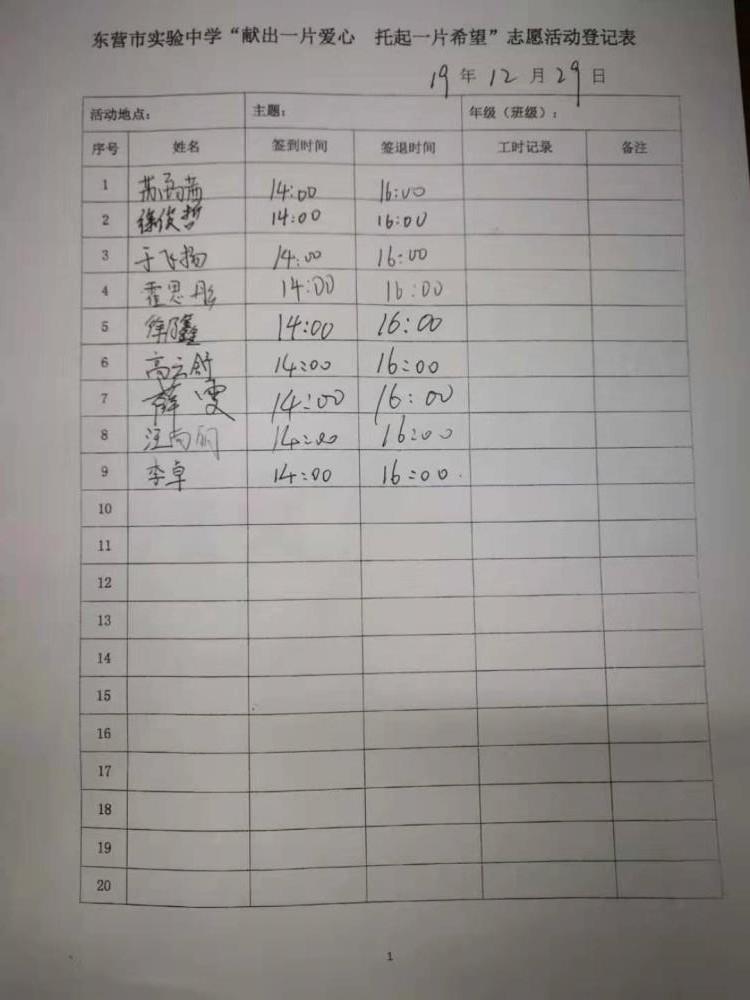 东营市实验中学“献出一片爱心 托起一片希望”志愿活动登记表
19年12月29日
活动地点： 主题： 年级（班级）：
序号 姓名 签到时间 签退时间 工时记录 备注
1 14:00 16:00
2 徐俊哲 14:00 16:00
3 于飞扬 14:00 16:00
4 霍思彤 14:00 16:00
5 14:00 16:00
6 高云舒 14:00 16:00
7 薛雯 14:00 16:00
8 14:00 16:00
9 李卓 14:00 16:00.
10
11
12
13
14
15
16
17
18
19
20
1